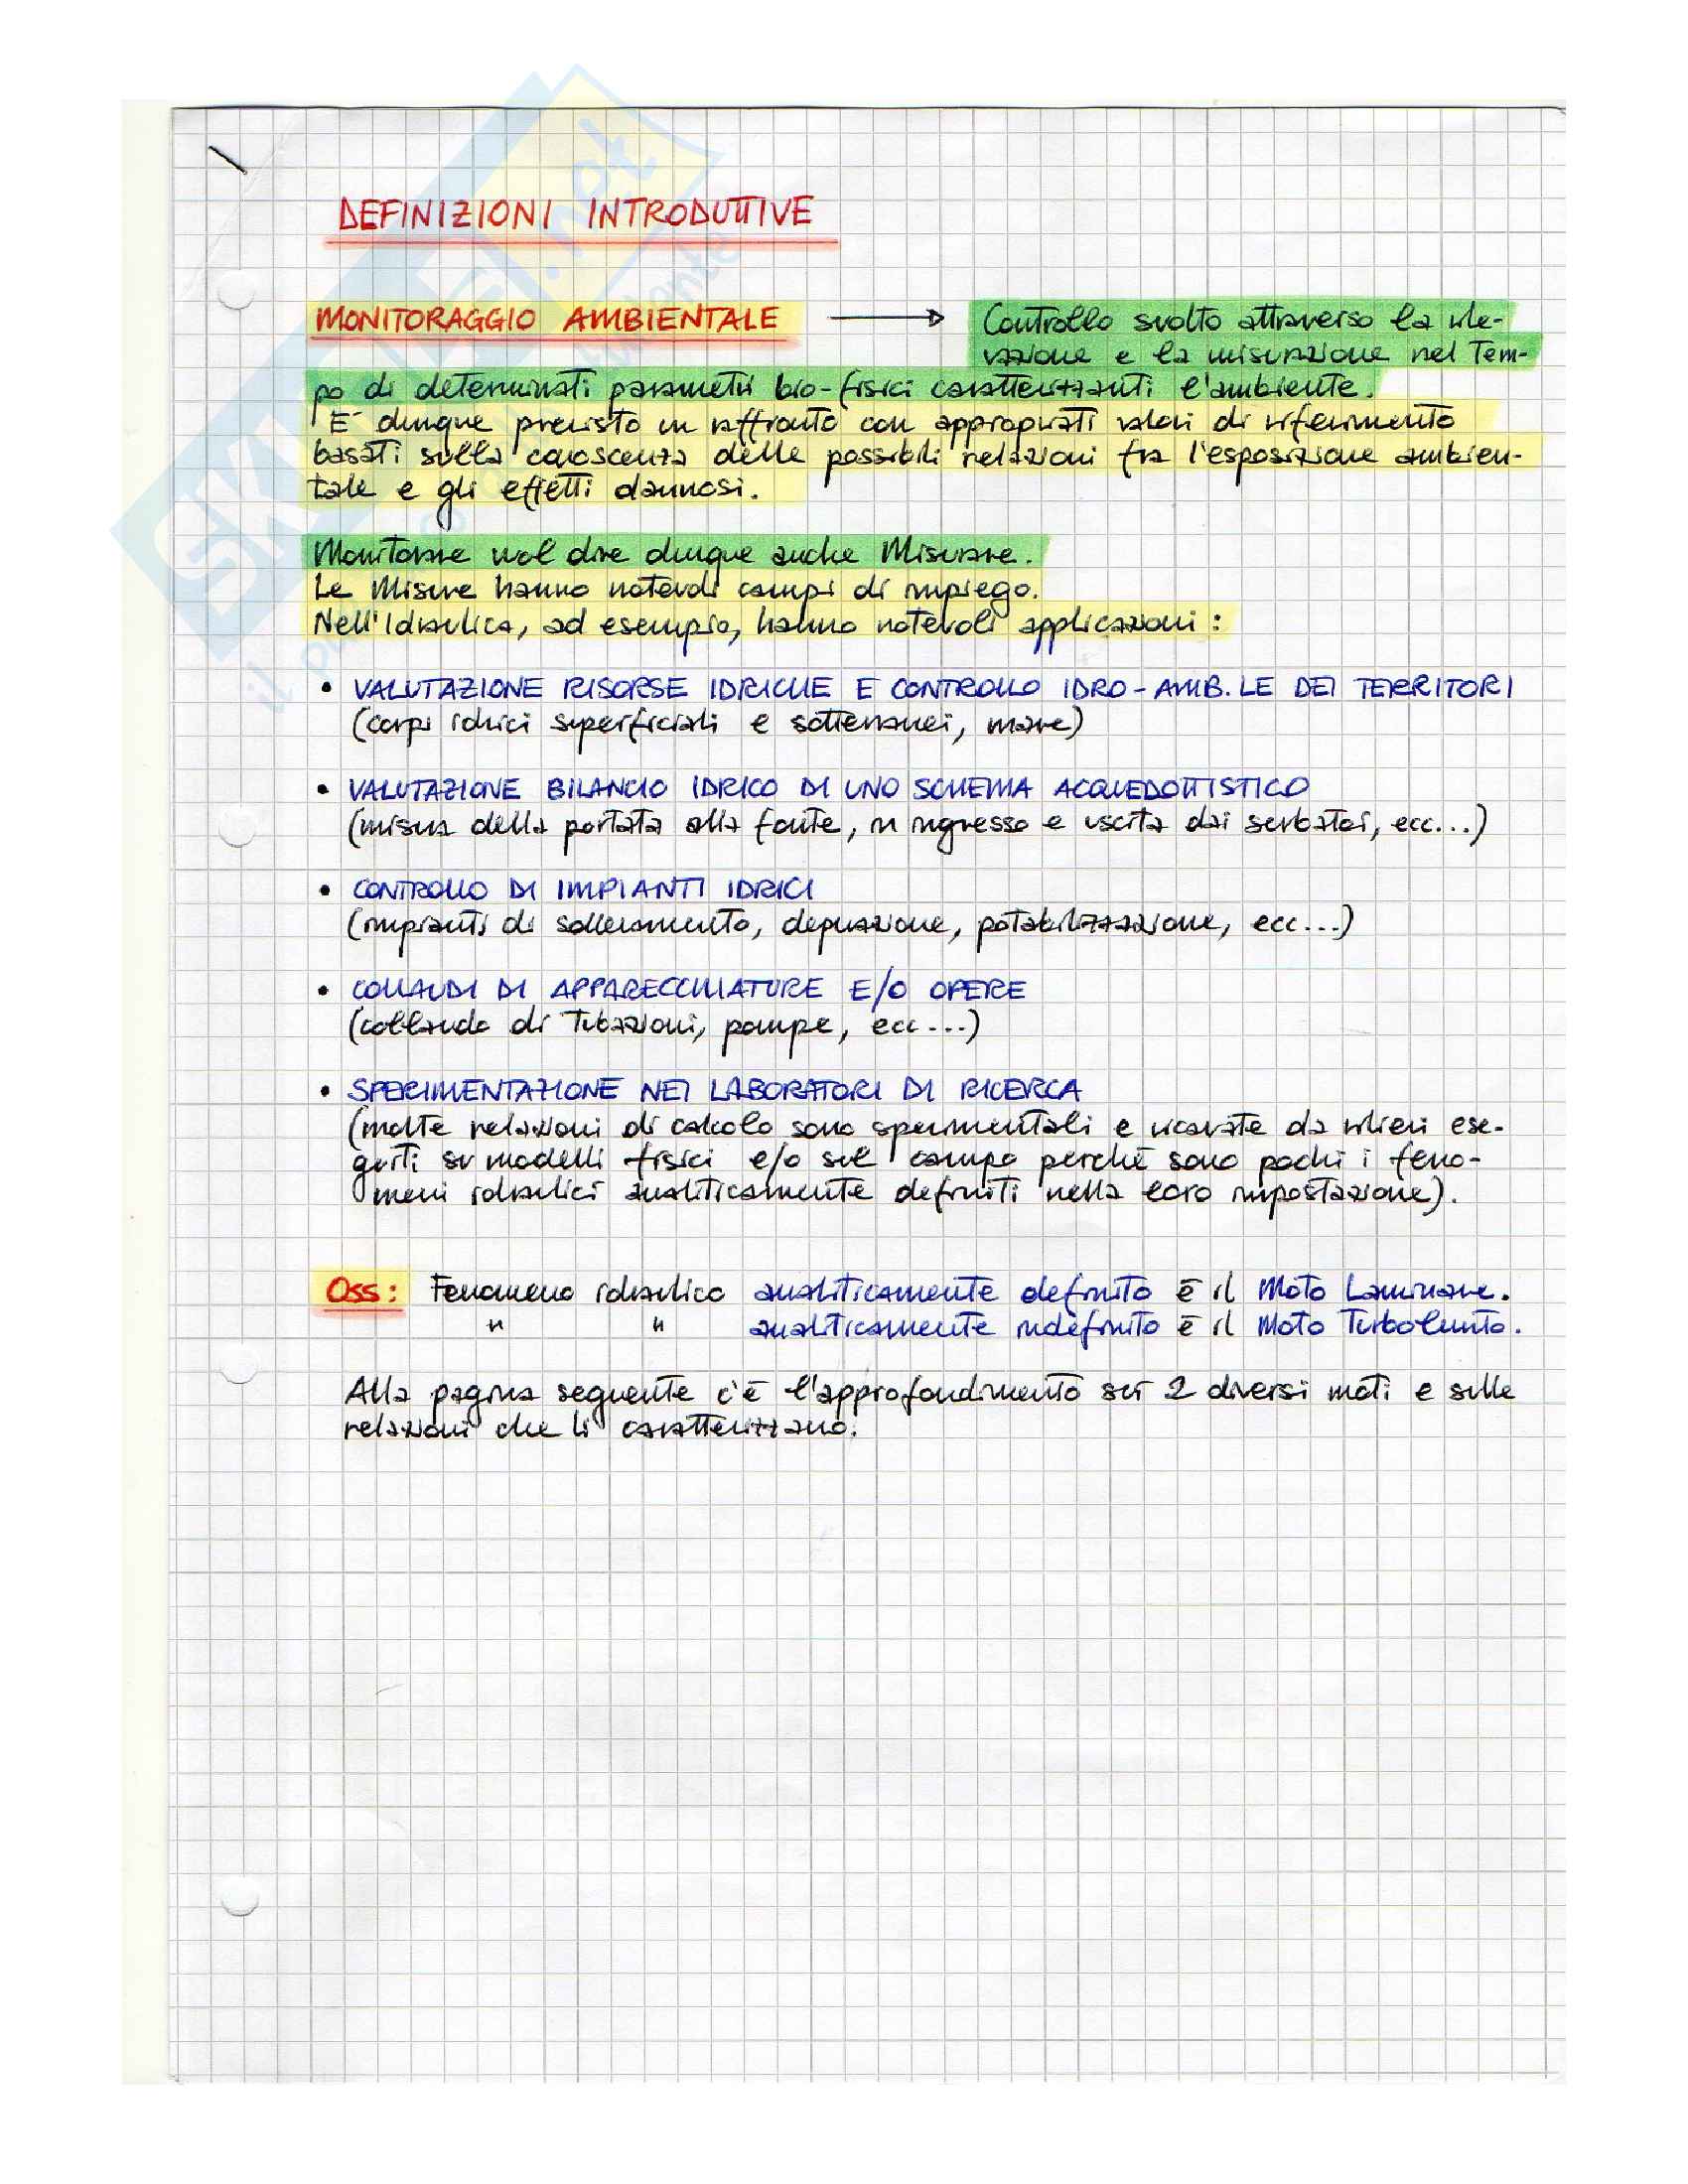 DEFINIZIONI INTRODUTTIVE
MONITORAGGIO AMBIENTALE → Controllo svolto attraverso la rile-
vazione e la misurazione nel tem-
po di determinati parametri bio-fisici caratterizzanti l'ambiente.
E' dunque previsto un raffronto con appropriati valori di riferimento
basati sulla conoscenza delle possibili relazioni fra l'esposizione ambien-
tale e gli effetti dannosi.
Monitorare vuol dire dunque anche Misurare.
Le Misure hanno notevoli campi di impiego.
Nell'Idraulica, ad esempio, hanno notevoli applicazioni:
• VALUTAZIONE RISORSE IDRICHE E CONTROLLO IDRO-AMB.LE DEI TERRITORI
(corpi idrici superficiali e sotterranei, mare)
• VALUTAZIONE BILANCIO IDRICO DI UNO SCHEMA ACQUEDOTTISTICO
(misura della portata alla fonte, in ingresso e uscita dai serbatoi, ecc...)
• CONTROLLO DI IMPIANTI IDRICI
(impianti di sollevamento, depurazione, potabilizzazione, ecc...)
• COLLAUDI DI APPARECCHIATURE E/O OPERE
(collaudo di Tubazioni, pompe, ecc...)
• SPERIMENTAZIONE NEI LABORATORI DI RICERCA
(molte relazioni di calcolo sono sperimentali e ricavate da rilievi ese-
guiti su modelli fisici e/o sul campo perchè sono pochi i feno-
meni idraulici analiticamente definiti nella loro impostazione).
Oss: Fenomeno idraulico analiticamente definito è il Moto Laminare.
" " analiticamente indefinito è il Moto Turbolento.
Alla pagina seguente c'è l'approfondimento sui 2 diversi moti e sulle
relazioni che li caratterizzano.
SKUOLA.net